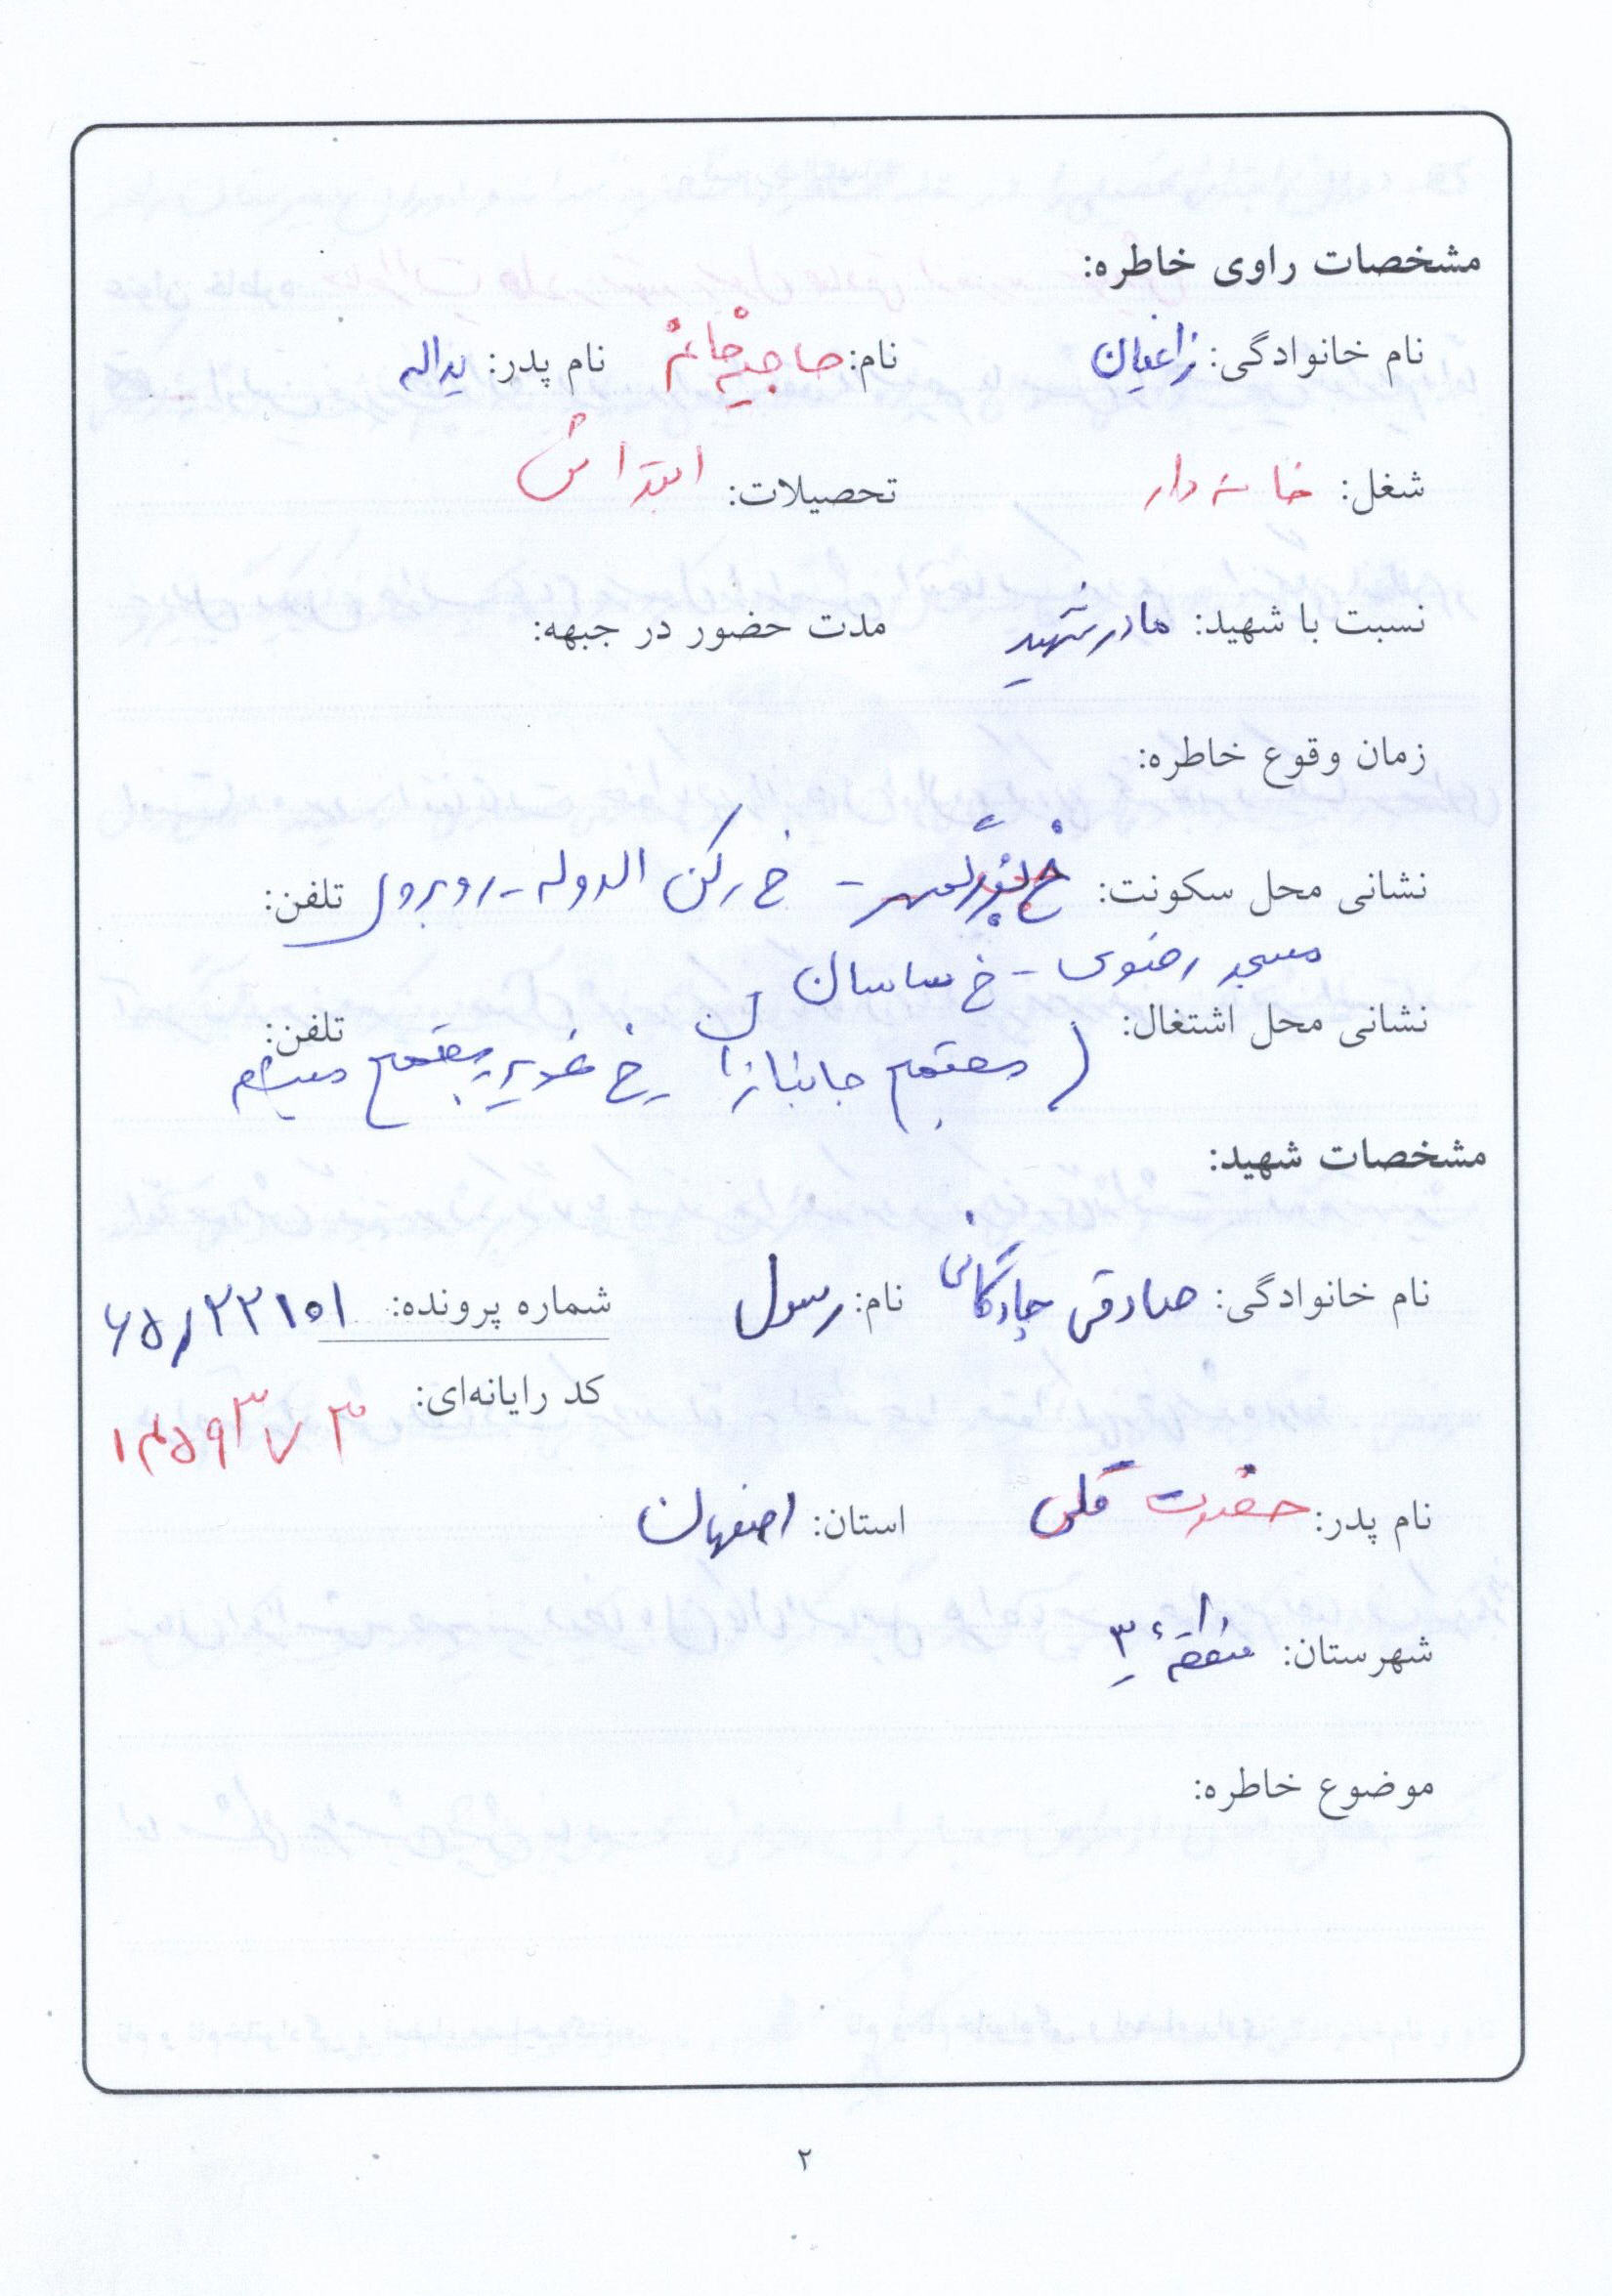 مشخصات راوی خاطره:
نام خانوادگی: زاغیان نام: حاجیه خانم نام پدر: یداله
شغل: خانه دار تحصیلات: ابتدائی
نسبت با شهید: مادر شهید مدت حضور در جبهه:
زمان وقوع خاطره:
نشانی محل سکونت: - خ رکن الدوله - روبروی تلفن:
مسجد رضوی - خ ساسان
نشانی محل اشتغال: تلفن:
( مجتمع جانبازان خ غدیر مجتمع میثم
مشخصات شهید:
نام خانوادگی: صادقی چادگانی نام: رسول شماره پرونده: ۶۵/۲۲۱۰۱
کد رایانه‌ای: ۱۴۵۹۳۷۳
نام پدر: حضرت قلی استان: اصفهان
شهرستان: منطقه ۳
موضوع خاطره:
۲